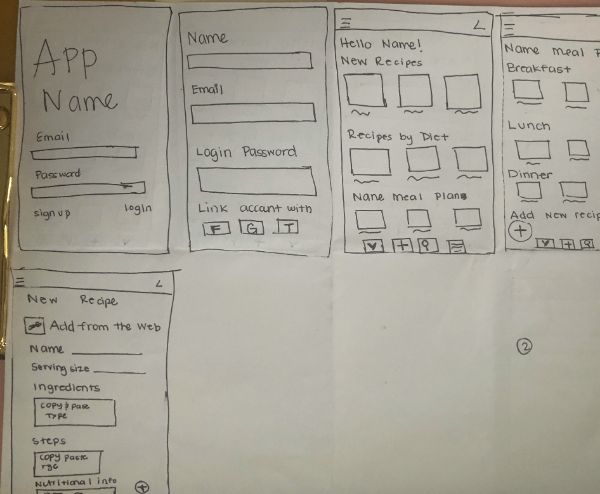 App
Name
Email
Password
sign up login
Name
Email
Login Password
Link accant with
F G T
Hello Name!
New Recipes
Recipes by Diet
Name meal plans
Name meal P
Breakfast
Lunch
Dinner
Add New recip
New Recipe
Add from the web
Name
Serving size
Ingredients
copy & paste
Type
Steps
copy paste
Nutritional info
2